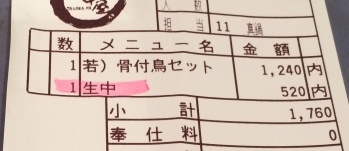 人数
担当 11 真鍋
数 メニュー名 金額
1 若）骨付鳥セット 1,240内
1 生中 520内
小計 1,760
奉仕料 0